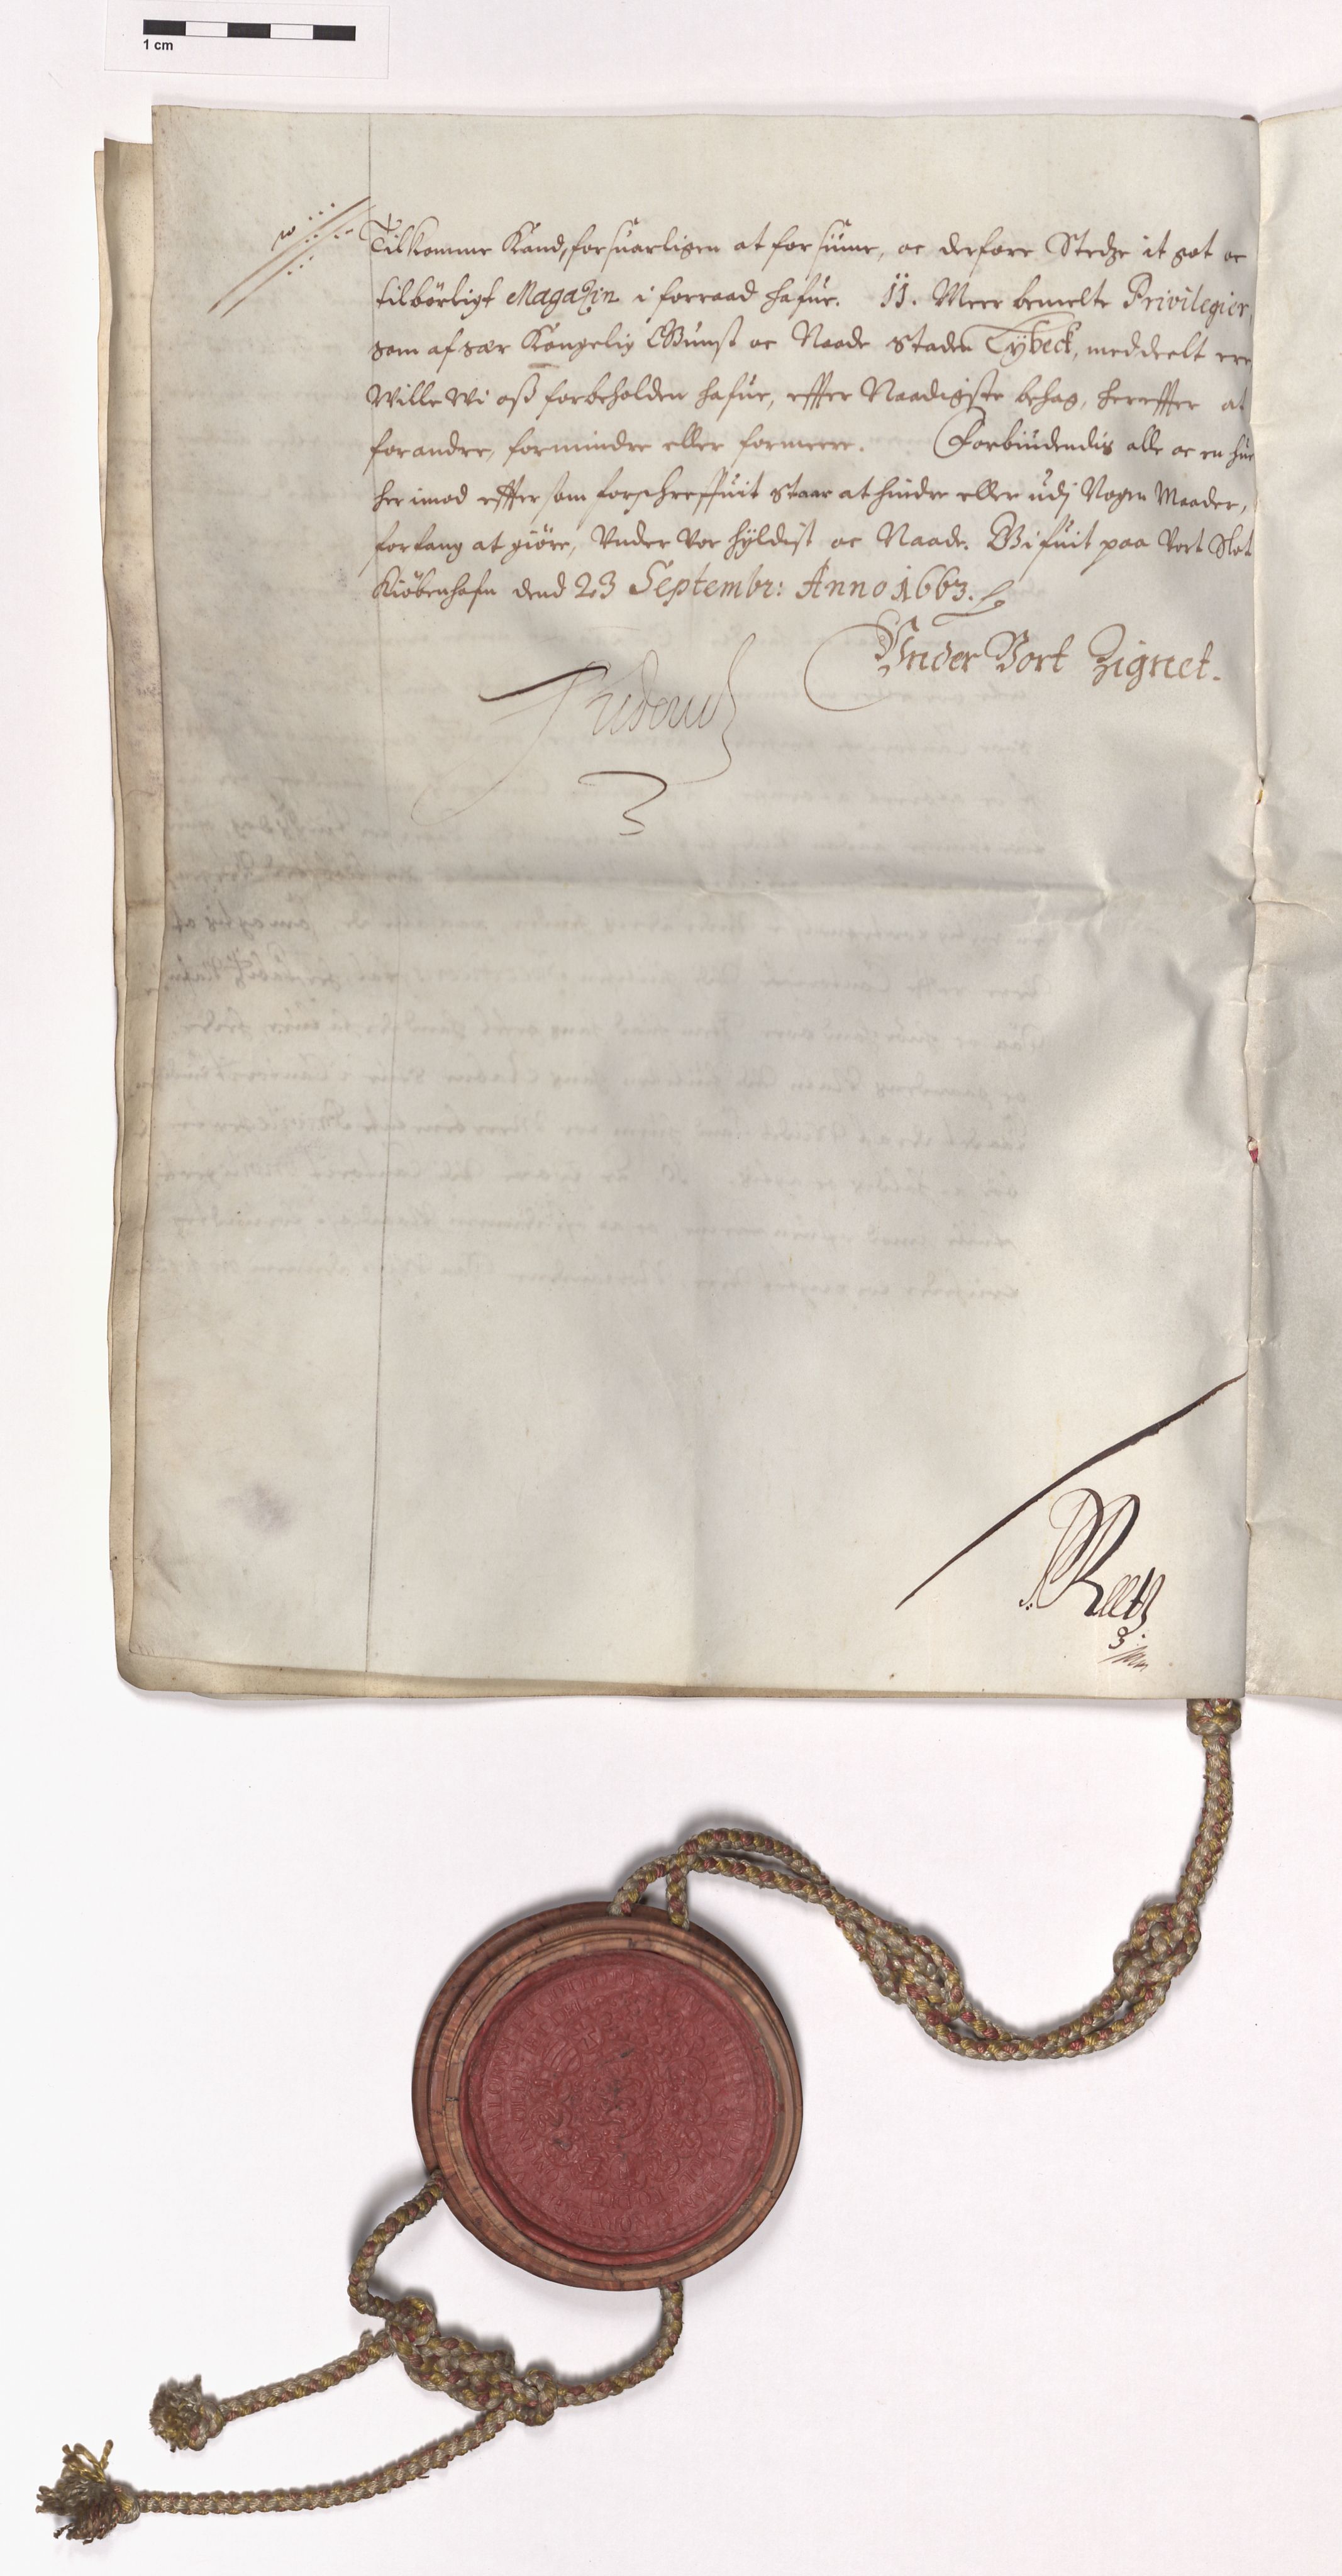 1 cm
Tilkomme Kand, forsuarligen at forsüme, oc derfore Stedze it got oc
tilbörligt Magazin i forraad hafüe. 11. Meer bemelte Privilegier,
som af sær Kongelig Gunst oc Naade Staden Lÿbeck, meddeelt ere
Wille Wi oß forbeholden hafüe, effter Naadigste behag, hereffter at
forandre, formindre eller formeere. Forbiudendis alle oc en huer
her imod effter som forschreffuit staar at hindre eller udj Nogen Maader,
forfang at giöre, Vnder Vor Hÿldist oc Naade. Gifuit paa Vort Slot
Kiöbenhafn dend 23 Septembr: Anno 1663.
Vnder Vort Zignet.
Friderich
3
PReetz